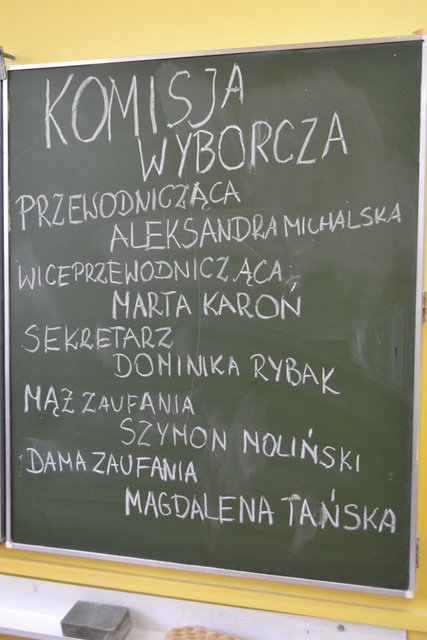 KOMISJA
WYBORCZA
PRZEWODNICZĄCA
ALEKSANDRA MICHALSKA
WICEPRZEWODNICZĄCA:
MARTA KAROŃ
SEKRETARZ
DOMINIKA RYBAK
MĄŻ ZAUFANIA
SZYMON NOLIŃSKI
DAMA ZAUFANIA
MAGDALENA TAŃSKA